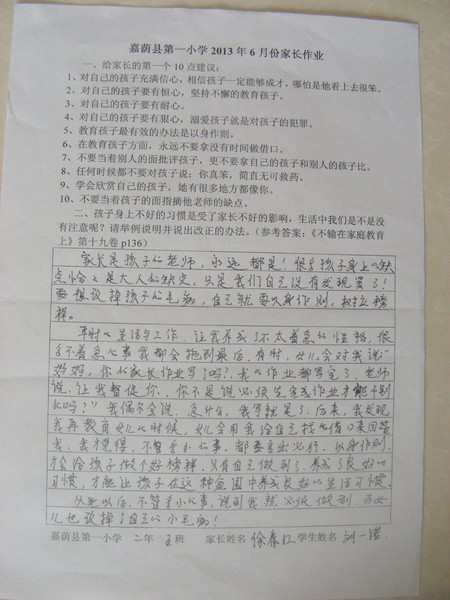 嘉荫县第一小学2013年6月份家长作业
一、给家长的第一个10点建议:
1、对自己的孩子充满信心,相信孩子一定能够成才,哪怕是他看上去很笨。
2、对自己的孩子要有恒心,坚持不懈的教育孩子。
3、对自己的孩子要有耐心。
4、对自己的孩子要有狠心,溺爱孩子就是对孩子的犯罪。
5、教育孩子最有效的办法是以身作则。
6、在教育孩子方面,永远不要拿没有时间做借口。
7、不要当着别人的面批评孩子,更不要拿自己的孩子和别人的孩子比。
8、任何时候都不要对孩子说:你真笨,简直无可救药。
9、学会欣赏自己的孩子,她有很多地方都像你。
10、不要当着孩子的面指摘他老师的缺点。
二、孩子身上不好的习惯是受了家长不好的影响,生活中我们是不是没
有注意呢?请举例说明并说出改正的办法。(参考答案:《不输在家庭教育
上》第十九卷p136)
家长是孩子的老师,永远都是!很多孩子身上的缺
点恰恰是大人的缺点,只是我们自己没有发现罢了!
要想改掉孩子的毛病,自己就要以身作则,树立榜
样。
平时的生活与工作,让我养成了不太着急的性格,很
多不着急的事我都会拖到最后,有时,女儿会对我说"
妈妈,你的家长作业写了吗?我的作业都写完了,老师
说,让我督促你,你不是说必须先完成作业才能干别
的吗?"我偶尔会说,急什么,我写就是了。后来,我发现
我再教育女儿的时候,女儿会用我给自己找的借口来回答
我,我觉得,不管多小的事,都要言出必行,以身作则,
才会给孩子做个好榜样,只有自己做到了,养成了良好的
习惯,才能让孩子在这种氛围中养成良好的生活习惯。
从此以后,不管多小的事,说到我就必须做到,让女
儿也改掉了自己的小毛病!
嘉荫县第一小学 二年 班 家长姓名 徐春 学生姓名 刘一诺